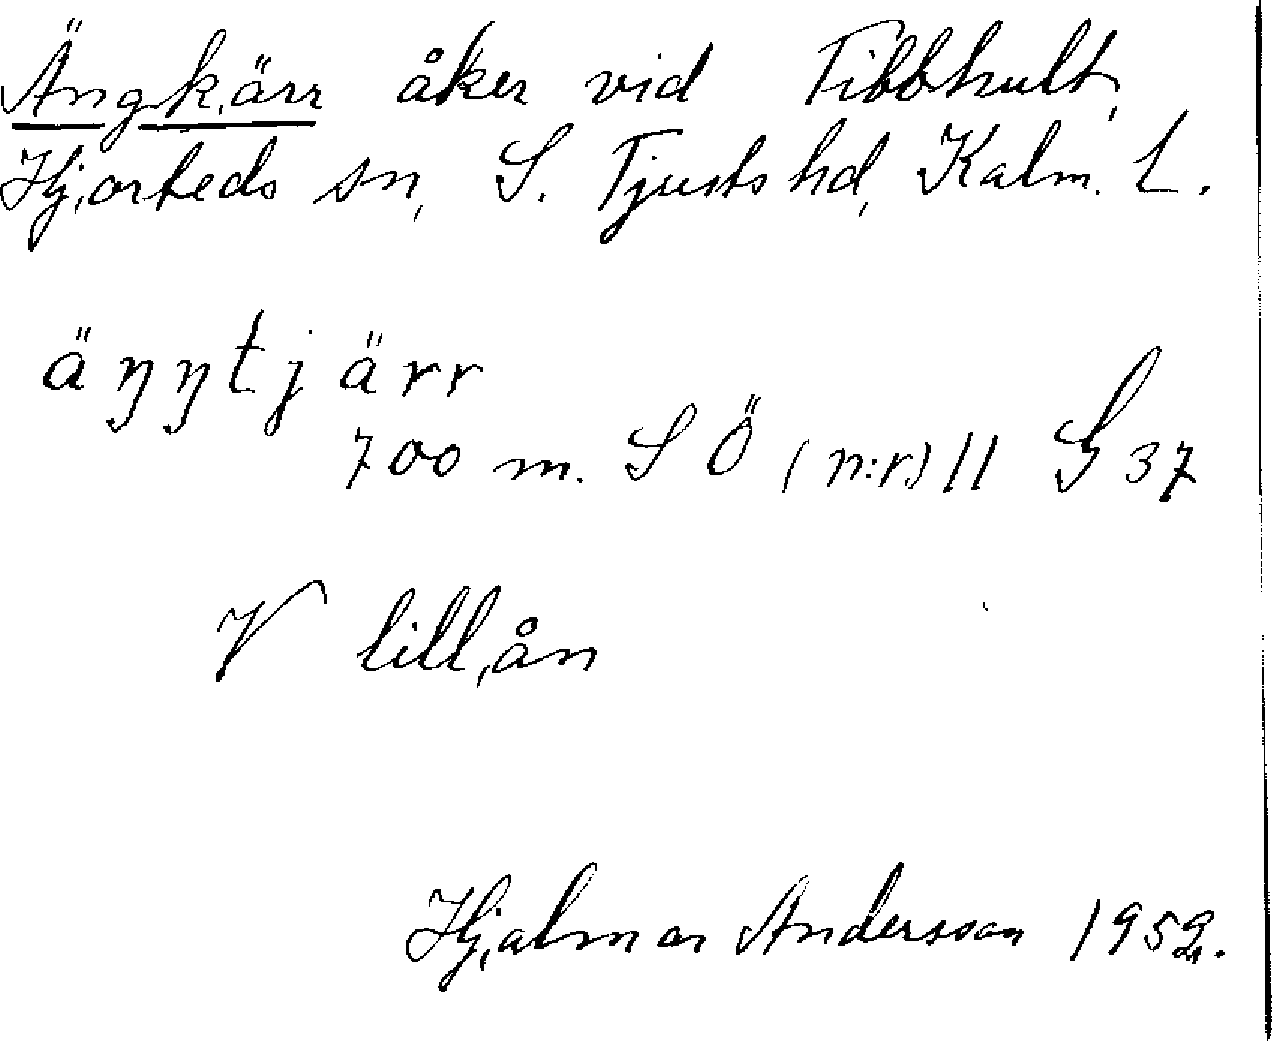 Ängkärr åker vid Tibbhult,
Hjorteds sn, S. Tjusts hd, Kalm. L.
äŋŋtjärr
700 m. S Ö (n:r) 11 G 37
V lillån
Hjalmar Andersson 1952.